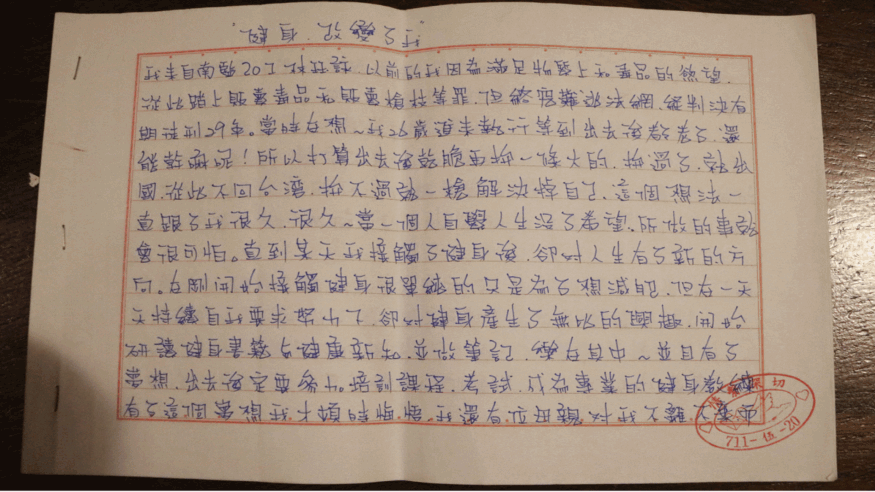 健身,改變了我。
我來自南監20工林廷 ,以前的我因為滿足物質上和毒品的慾望,
從此踏上販賣毒品和販賣槍枝等罪,但終究難逃法網,經判決有
期徒刑29年。當時在想~我26歲進來執行等到出去後都老了,還
能幹嘛呢!所以打算出去後乾脆再拚一條大的,拚過了,就出
國,從此不回台灣,拚不過就一槍解決掉自己,這個想法一
直跟了我很久,很久~當一個人自覺人生沒了希望,所做的事就
會很可怕。直到某天我接觸了健身後,卻對人生有了新的方
向。在剛開始接觸健身很單純目的只是為了想減肥,但在一天
天持續自我要求努力下,卻對健身產生了無比的興趣,開始
研讀健身書籍與健康新知,並做筆記, 在其中~並且有了
夢想,出去後定要參加培訓課程,考試,成為專業的健身教練
有了這個夢想我才頓時 ,我還有位母親對我不離不棄
711-伍-20